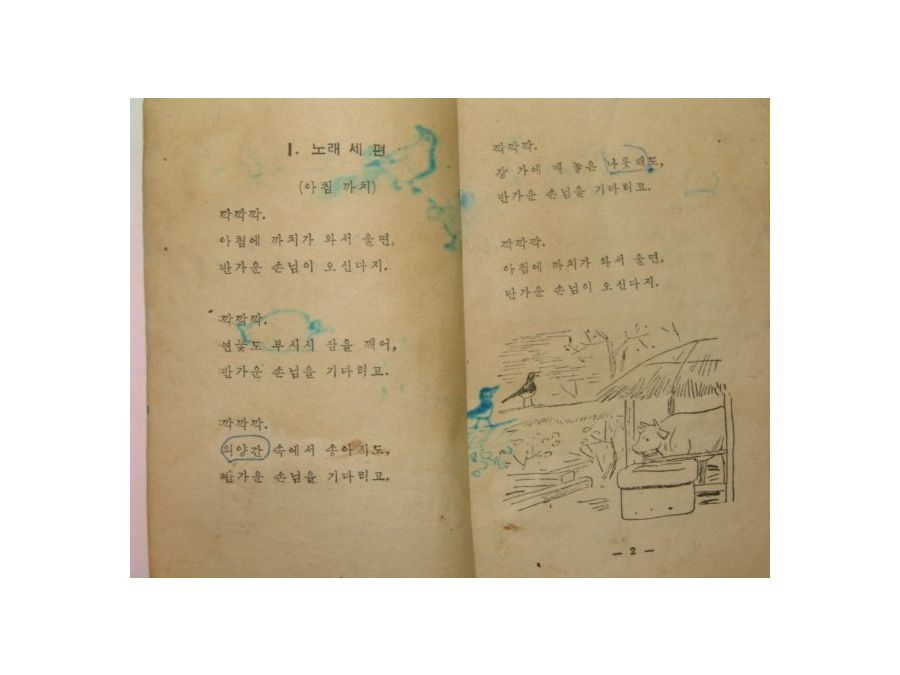 1. 노래 세 편
(아침 까치)
깍깍깍.
아침에 까치가 와서 울면,
반가운 손님이 오신다지.
깍깍깍.
연꽃도 부시시 잠을 깨어,
반가운 손님을 기다리고.
깍깍깍.
외양간 속에서 송아지도,
반가운 손님을 기다리고,
깍깍깍.
강 가에 매 놓은 나룻배도,
반가운 손님을 기다리고.
깍깍깍.
아침에 까치가 와서 울면,
반가운 손님이 오신다지.
— 2 —